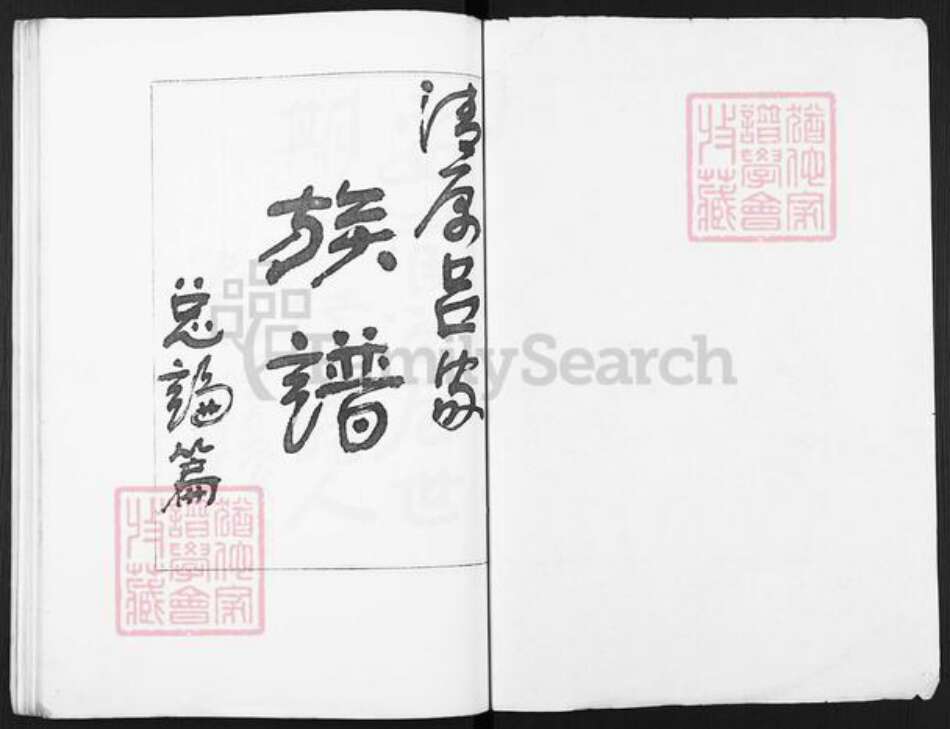 猶他家
譜學會
收藏
清原吕家
族譜
总論篇
猶他家
譜學會
收藏
FamilySearch